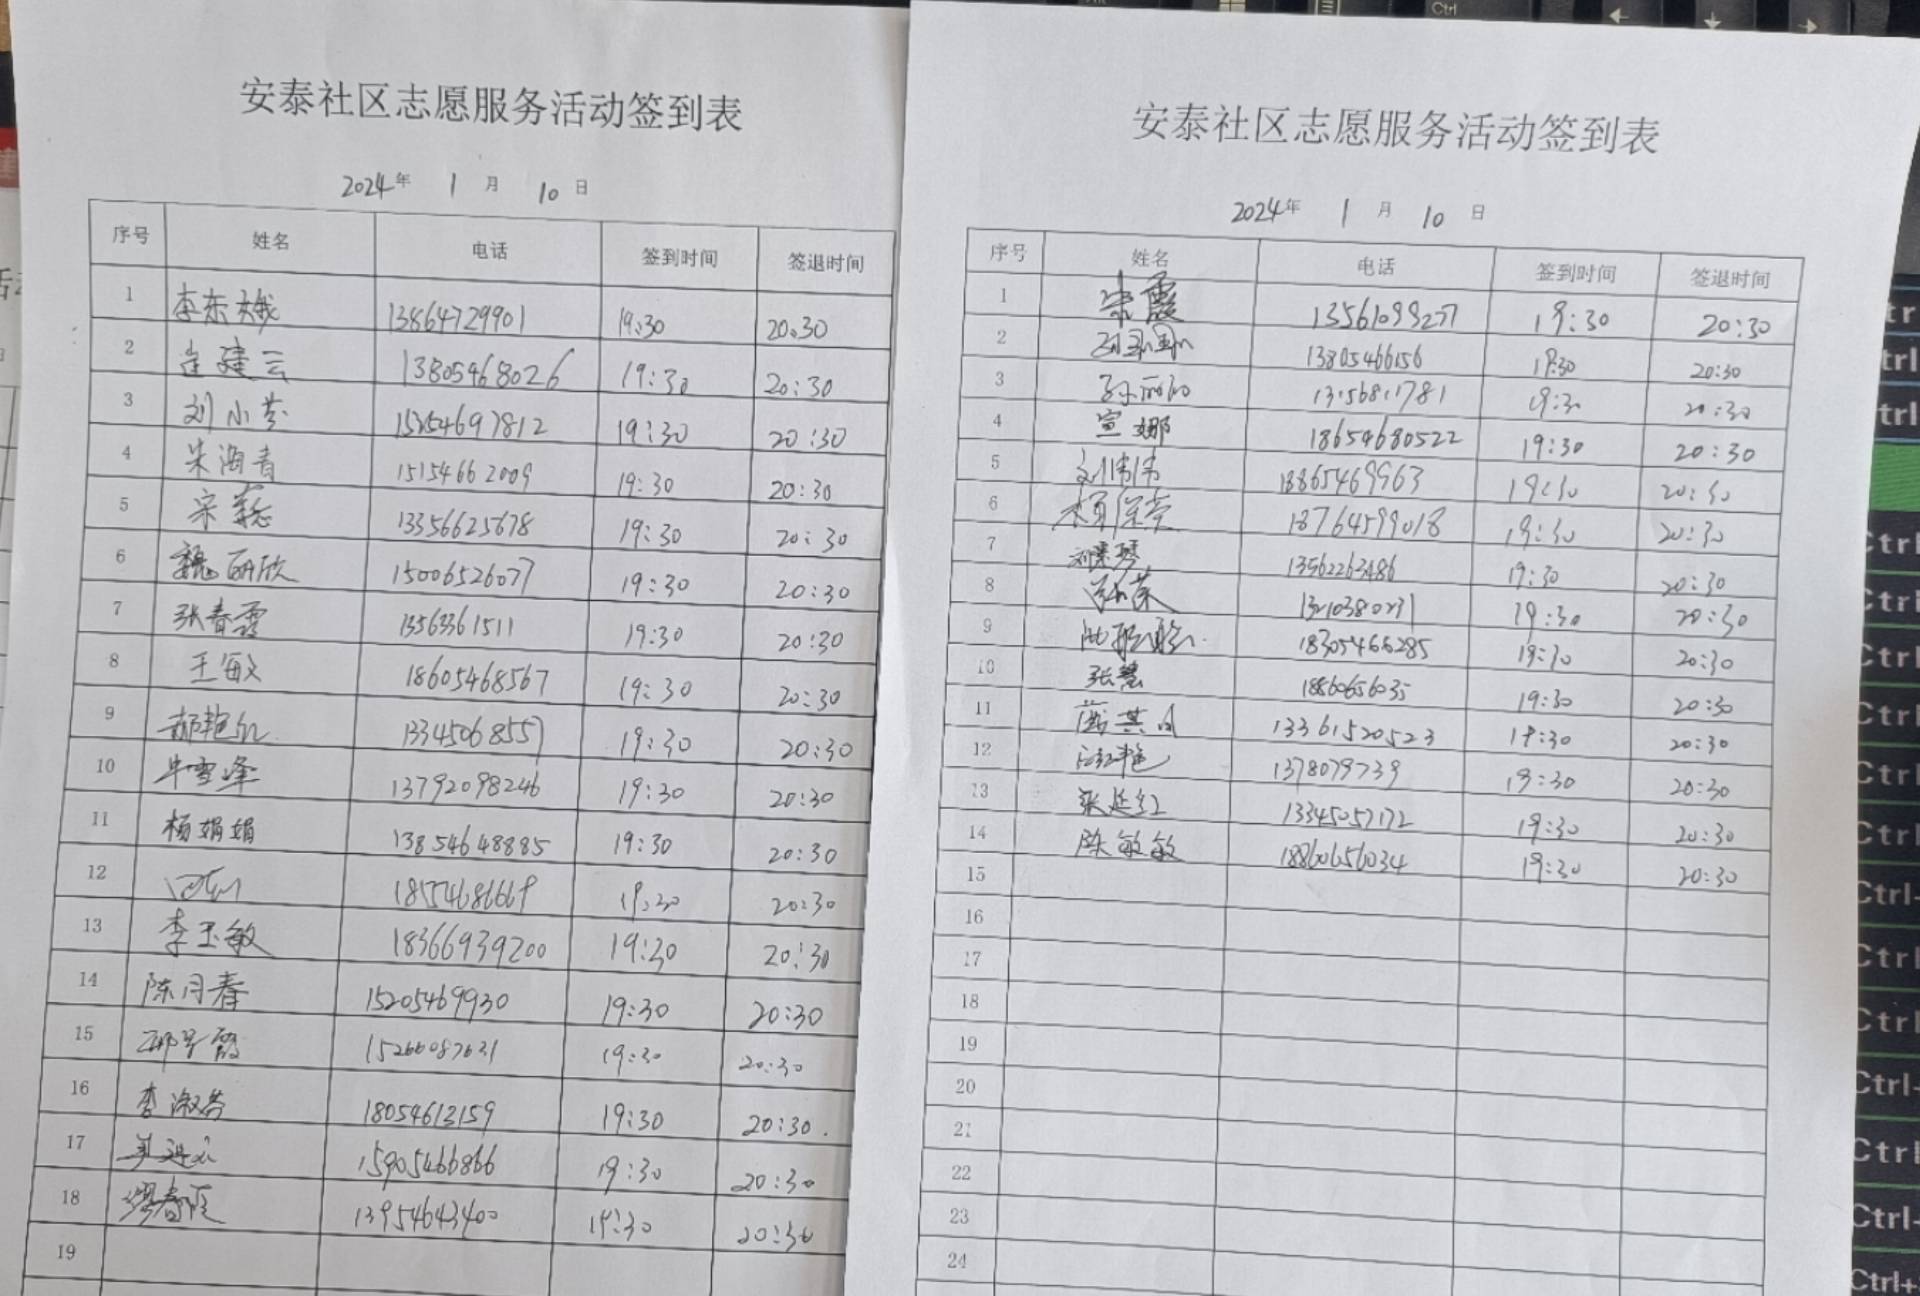 安泰社区志愿服务活动签到表
2024年 1月 10日
序号 姓名 电话 签到时间 签退时间
1 李东娥 13864729901 19:30 20:30
2 连建云 13805468026 19:30 20:30
3 刘小芬 15254697812 19:30 20:30
4 朱海青 15154662009 19:30 20:30
5 宋 13356625678 19:30 20:30
6 魏研欣 15006526077 19:30 20:30
7 张春霞 13563361511 19:30 20:30
8 王敏 18605468567 19:30 20:30
9 郝艳红 13345068557 19:30 20:30
10 牛雪峰 13792098246 19:30 20:30
11 杨娟娟 13854648885 19:30 20:30
12 19:30 20:30
13 李玉敏 18366939200 19:30 20:30
14 陈月春 15205469930 19:30 20:30
15 15266087631 19:30 20:30
16 李淑芳 18054613159 19:30 20:30
17 15905466866 19:30 20:30
18 缪春霞 13954643400 19:30 20:30
19
安泰社区志愿服务活动签到表
2024年 1月 10日
序号 姓名 电话 签到时间 签退时间
1 朱霞 13561099277 19:30 20:30
2 13805466156 19:30 20:30
3 孙丽丽 13156811781 19:30 20:30
4 宣娜 18654680522 19:30 20:30
5 刘伟伟 18865469963 19:30 20:30
6 18764599018 19:30 20:30
7 刘素琴 13562263486 19:30 20:30
8 13210380231 19:30 20:30
9 18305466285 19:30 20:30
10 张慧 18860656035 19:30 20:30
11 13361520523 19:30 20:30
12 1378079739 19:30 20:30
13 张延红 13345057172 19:30 20:30
14 陈敏敏 18860656034 19:30 20:30
15
16
17
18
19
20
21
22
23
24